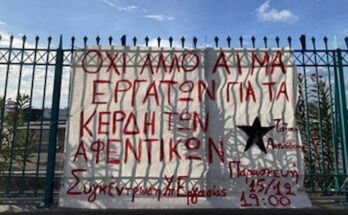 ΌΧΙ ΑΛΛΟ ΑΙΜΑ
ΕΡΓΑΤΩΝ ΓΙΑ ΤΑ
ΚΕΡΔΗ ΤΩΝ
ΑΦΕΝΤΙΚΩΝ
Συγκέντρωση Υπ. Εργασίας
Παρασκευή
15/12
19:00